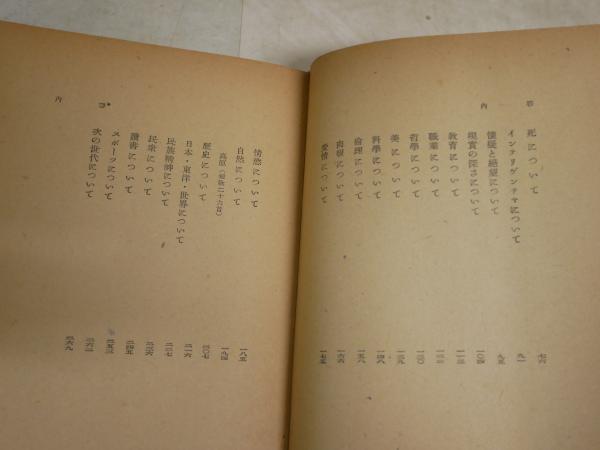 內容
死について 七六
インテリゲンチャについて 九一
懷疑と絕望について 九五
現實の深さについて 一〇四
教育について 一一三
職業について 一二二
哲學について 一三〇
美について 一三九
科學について 一四八
倫理について 一五八
について 一六六
愛情について 一七五
內容
情慾について 一八五
自然について 一九四
高原(短歌二十六首) 二〇七
歷史について 二一六
日本・東洋・世界について 二二七
民族精神について 二三六
民衆について 二四五
讀書について 二五三
スポーツについて 二六二
次の世代について 二六九